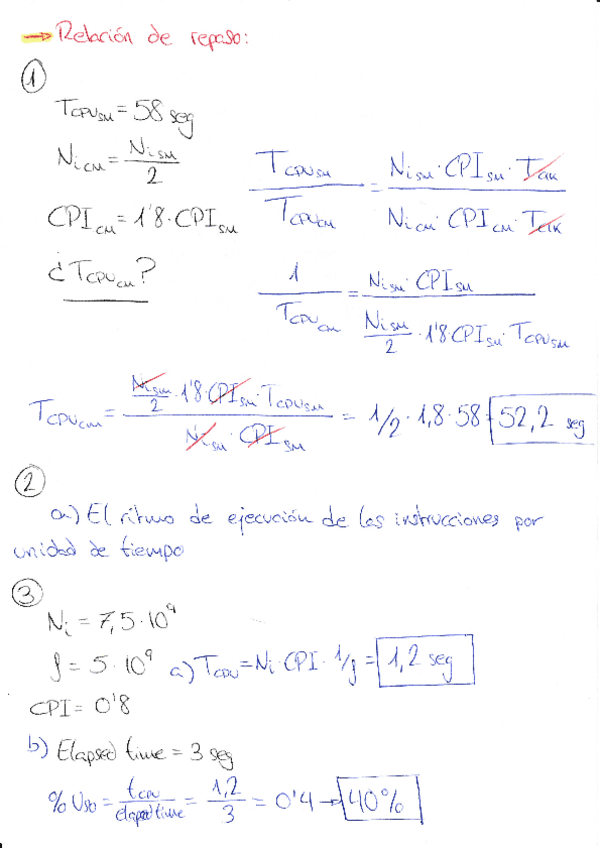 → Relación de repaso:
①
T_CPU_SM = 58 seg
Ni_CM = Ni_SM / 2
CPI_CM = 1'8 · CPI_SM
¿T_CPU_CM?
T_CPU_SM / T_CPU_CM = Ni_SM · CPI_SM · T_CLK / Ni_CM · CPI_CM · T_CLK
1 / T_CPU_CM = Ni_SM · CPI_SM / Ni_SM/2 · 1'8 · CPI_SM · T_CPU_SM
T_CPU_CM = Ni_SM/2 · 1'8 · CPI_SM · T_CPU_SM / Ni_SM · CPI_SM = 1/2 · 1,8 · 58 = 52,2 seg
②
a) El ritmo de ejecución de las instrucciones por
unidad de tiempo
③
Ni = 7,5 · 10⁹
f = 5 · 10⁹ a) T_CPU = Ni · CPI · 1/f = 1,2 seg
CPI = 0'8
b) Elapsed time = 3 seg
% Uso = t_CPU / elapsed time = 1,2 / 3 = 0'4 → 40%